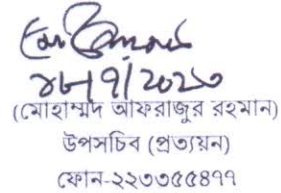 ১৮/৭/২০২৩
(মোহাম্মদ আফরাজুর রহমান)
উপসচিব (প্রত্যয়ন)
ফোন-২২৩৩৫৫৪৭৭